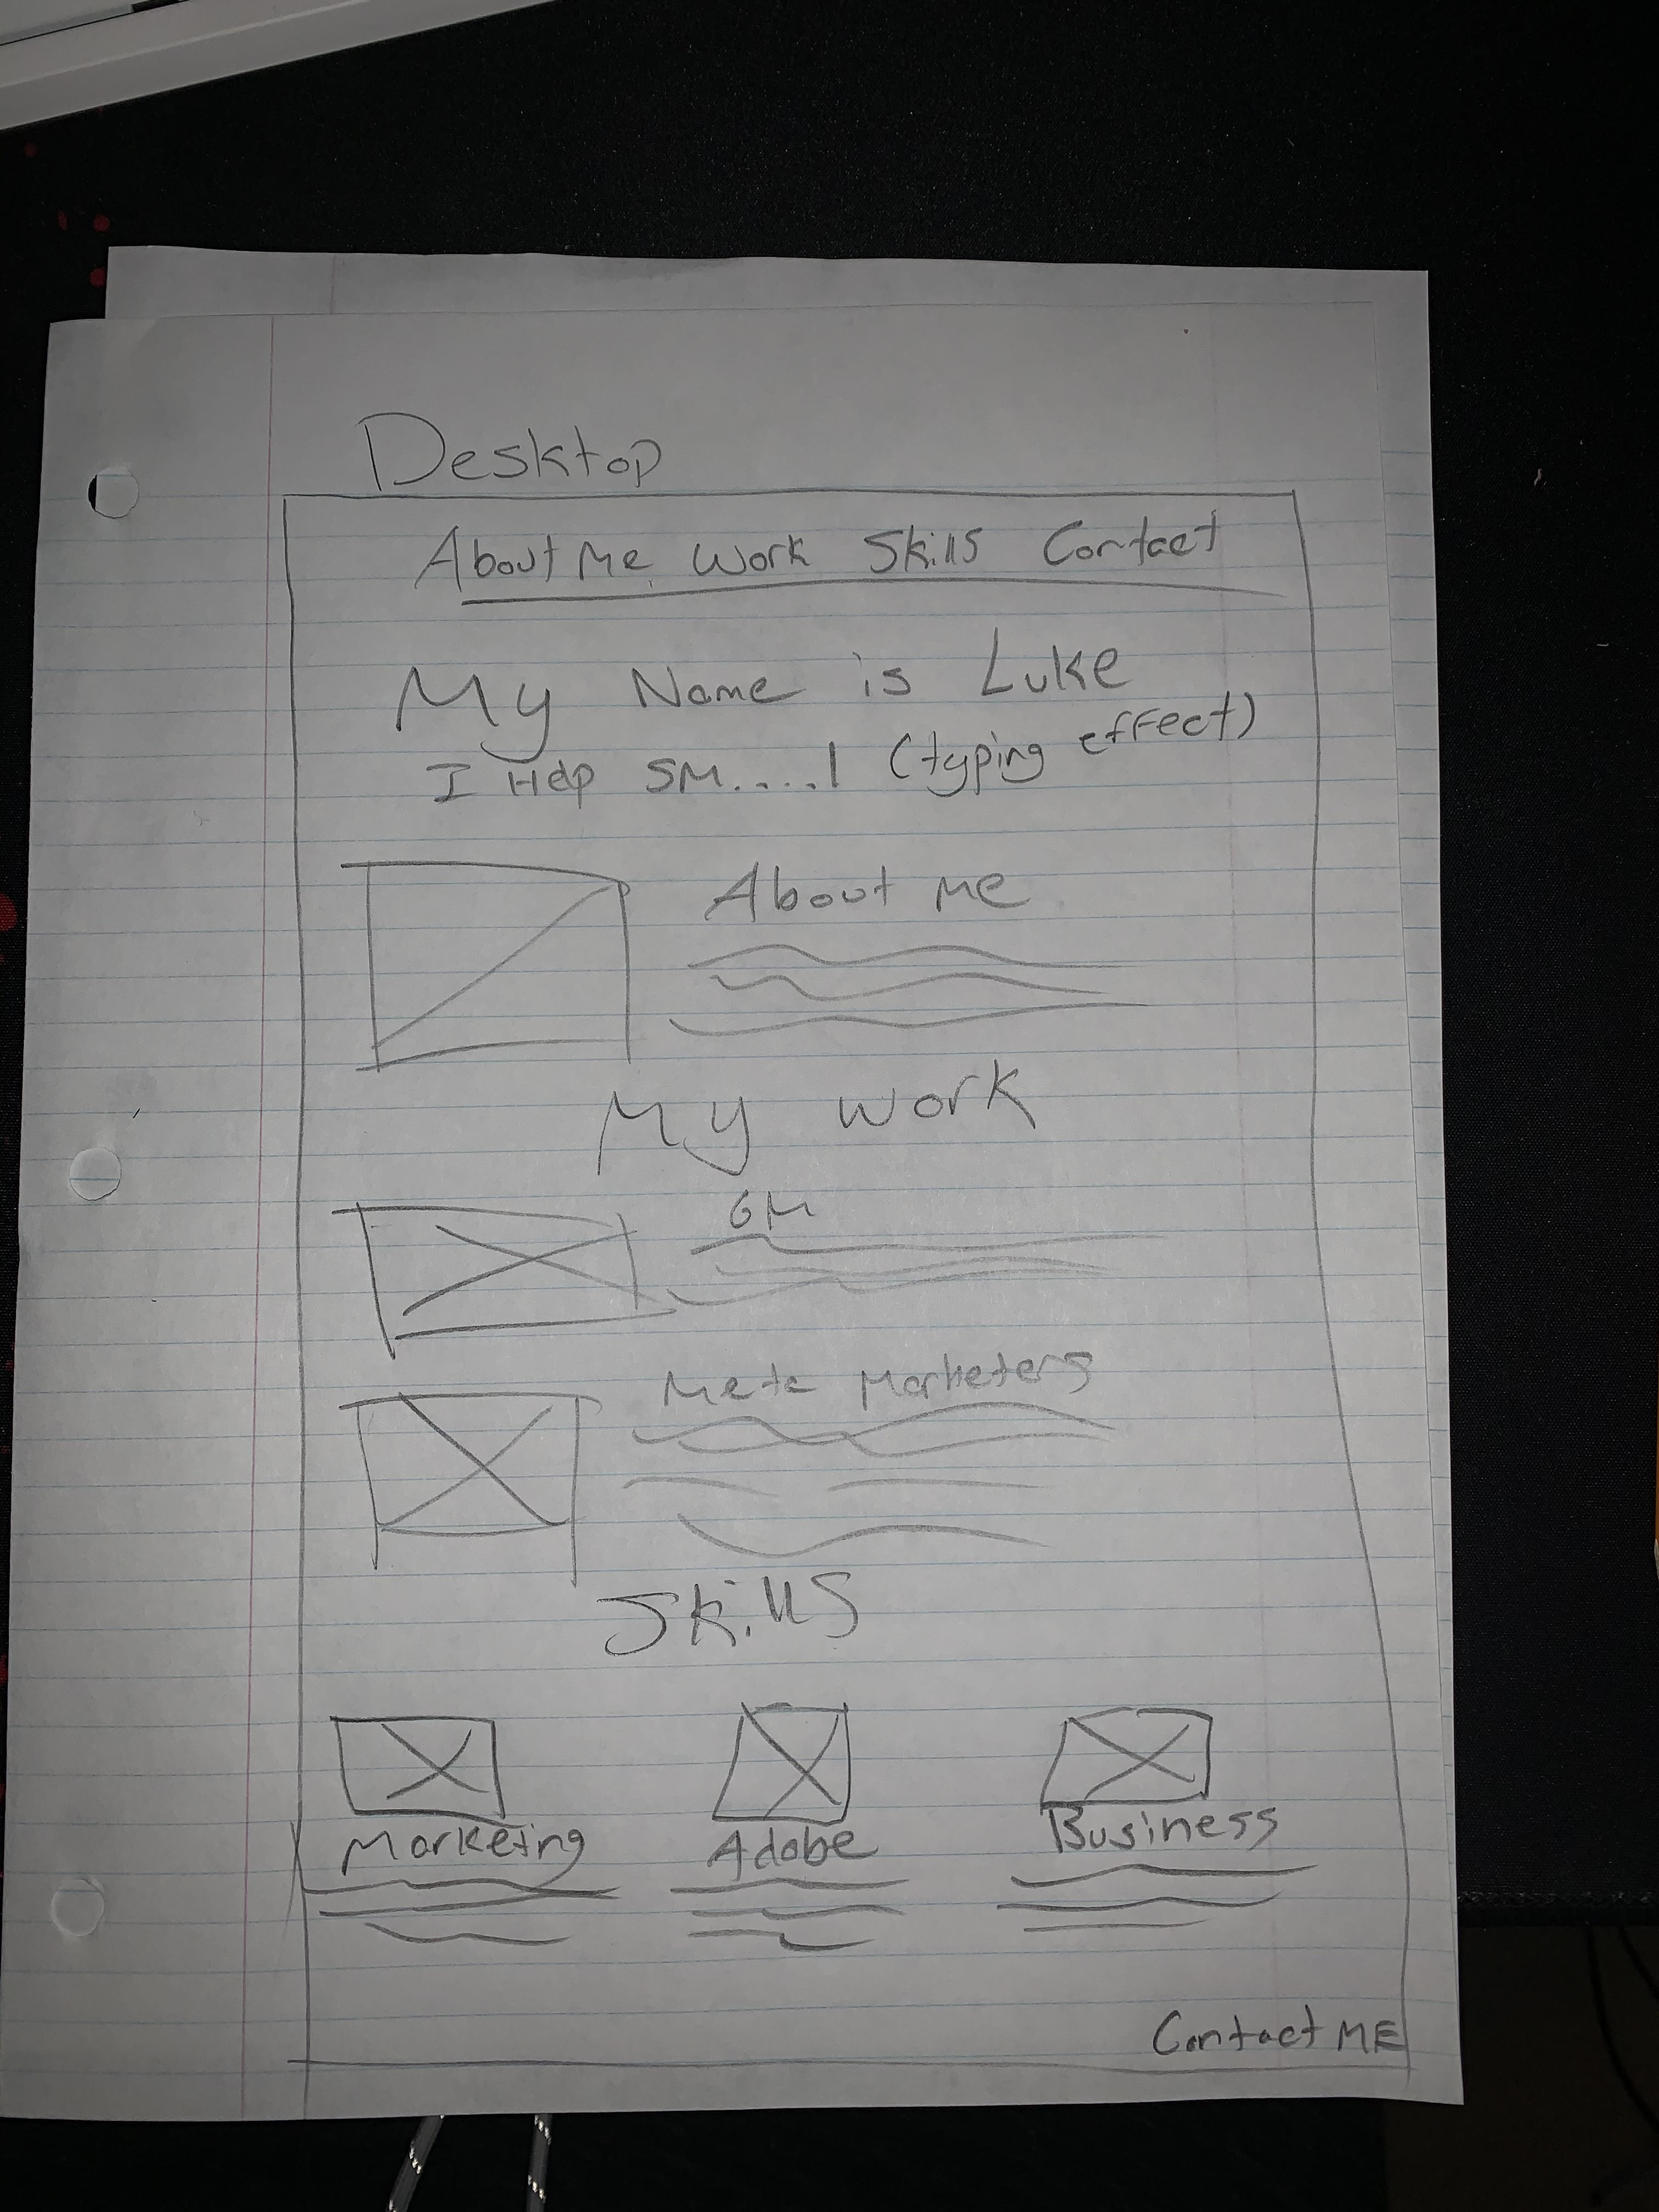 Desktop
About Me Work Skills Contact
My Name is Luke
I Help SM....| (typing effect)
About Me
My Work
GM
Meta Marketers
Skills
Marketing Adobe Business
Contact ME